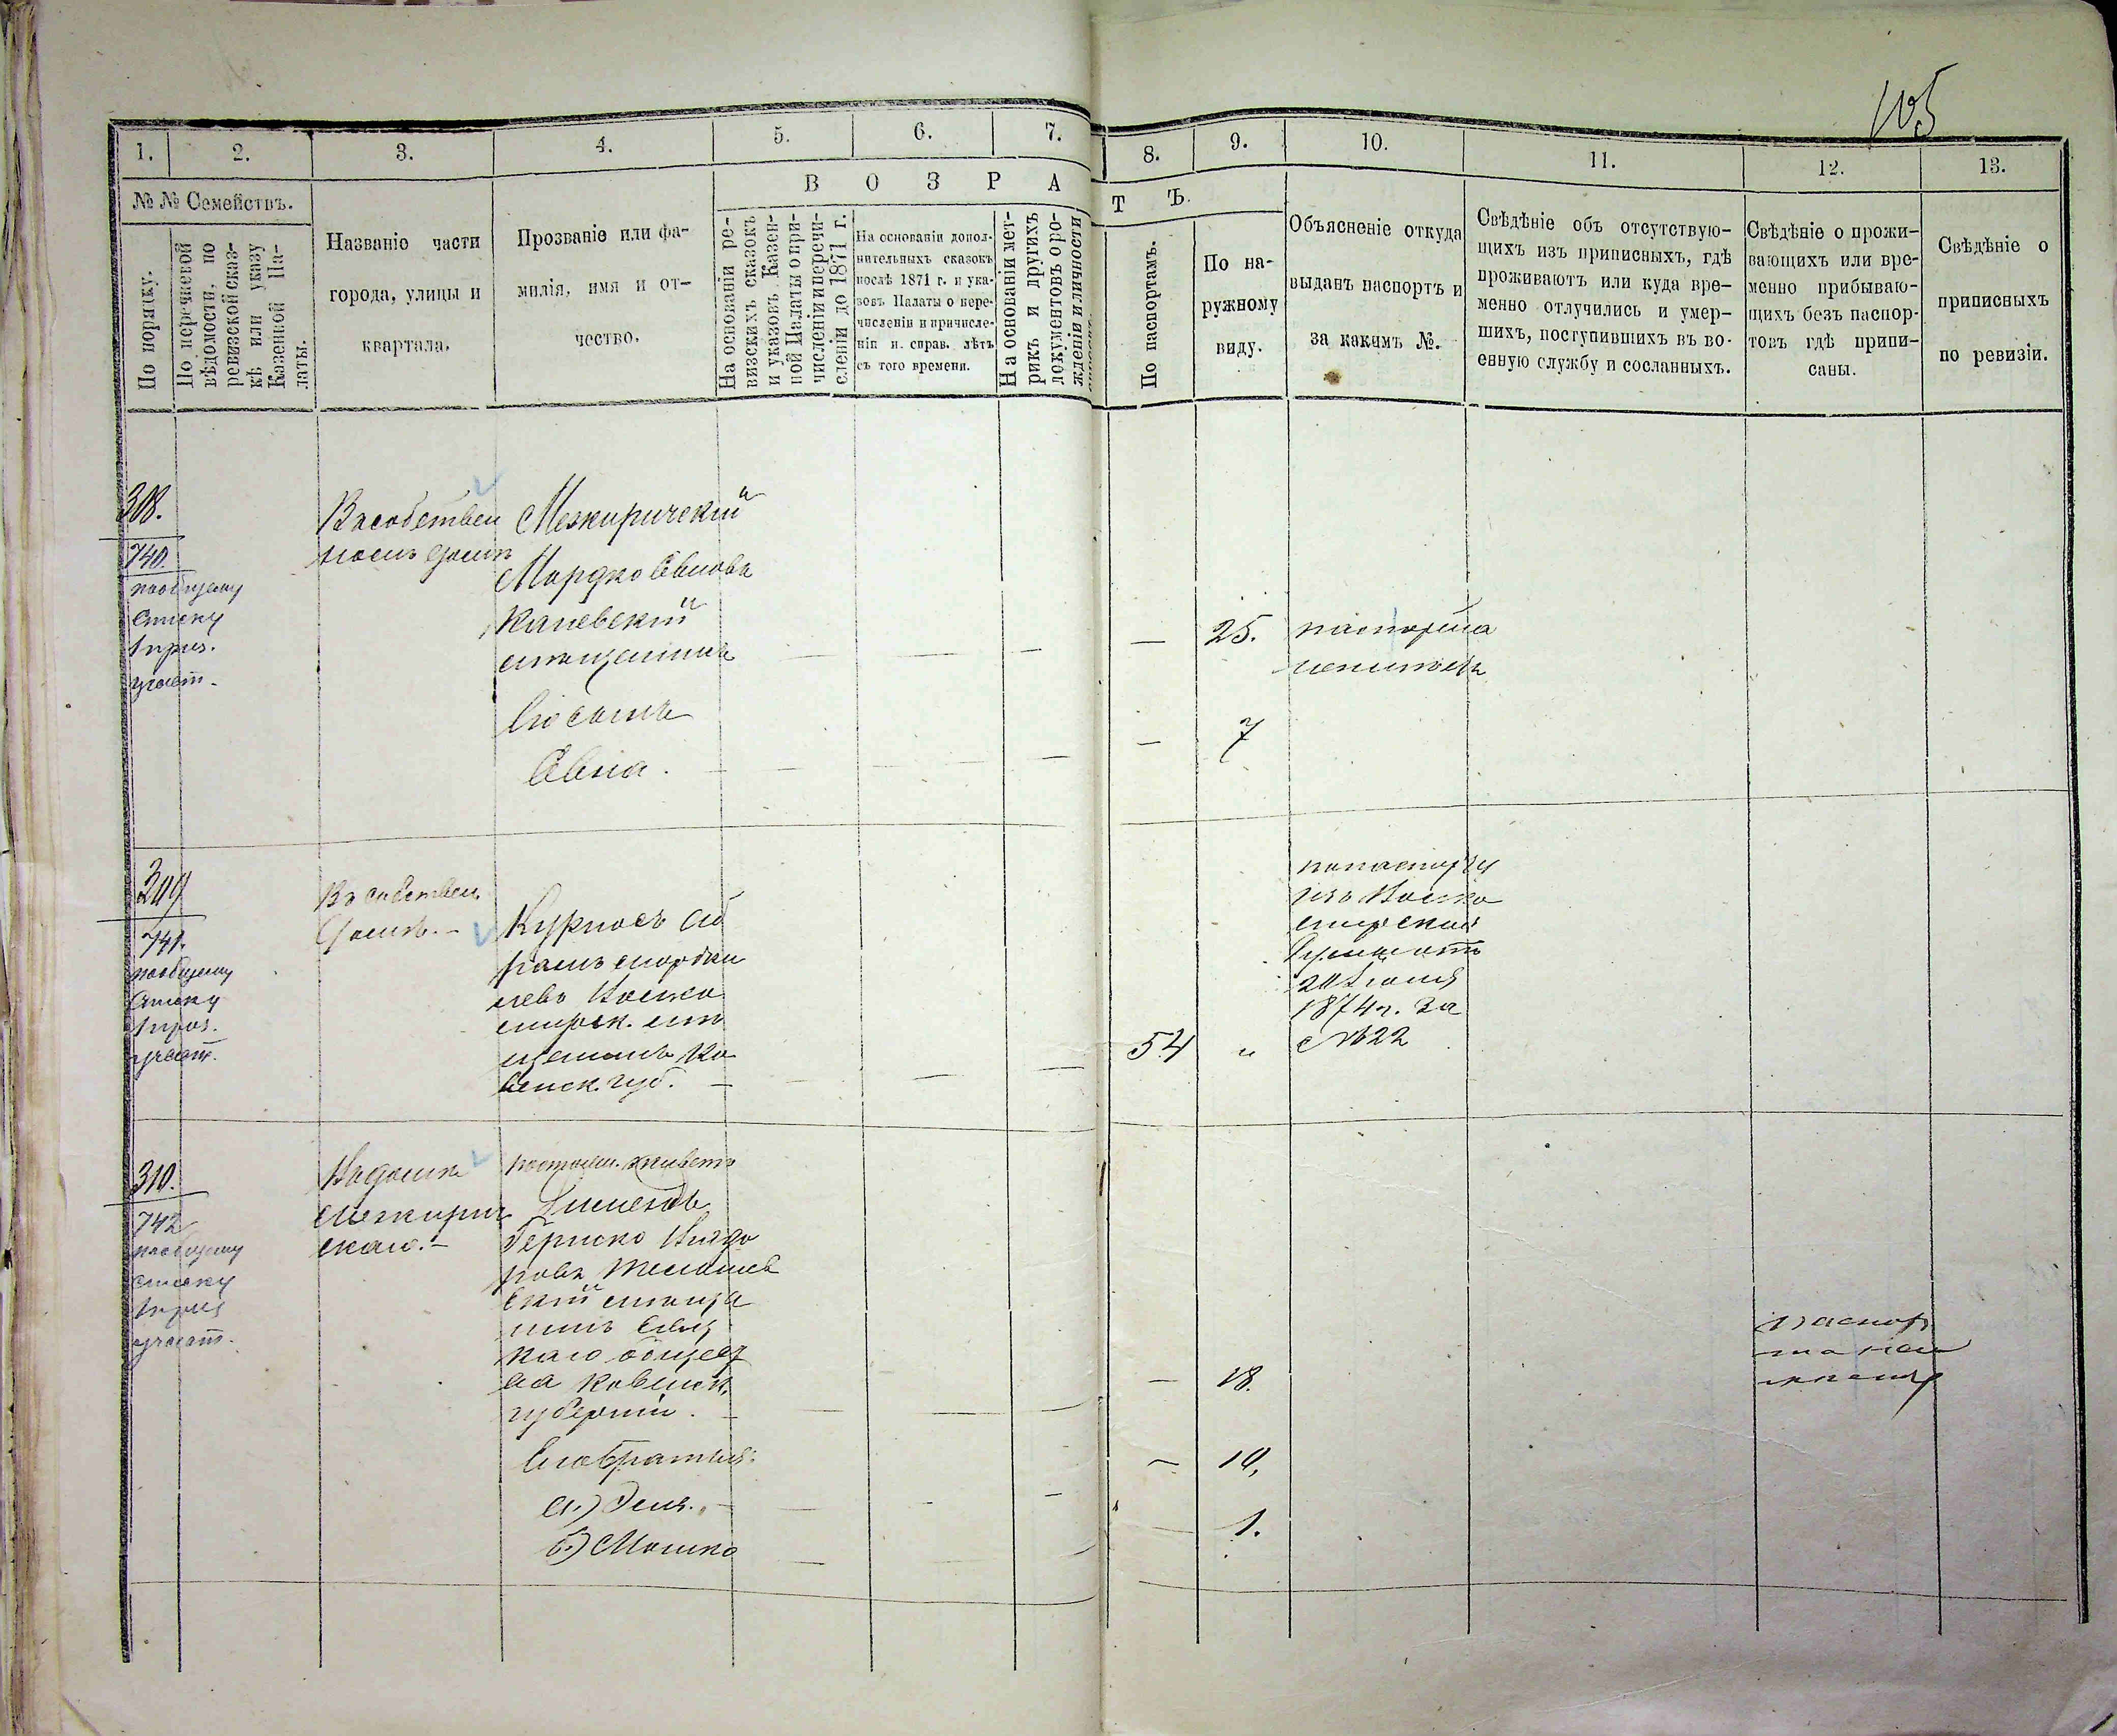 105
1. 2. 3. 4. 5. 6. 7. 8. 9. 10. 11. 12. 13.
№ № Семействъ.
По порядку.
По перечневой
вѣдомости, по
ревизской сказ-
кѣ или указу
Казенной Па-
латы.
Названіе части
города, улицы и
квартала.
Прозваніе или фа-
милія, имя и от-
чество.
В О З Р А Т Ъ.
На основаніи ре-
визскихъ сказокъ
и указовъ Казен-
ной Палаты о при-
численіи и перечи-
сленіи до 1871 г.
На основаніи допол-
нительныхъ сказокъ
послѣ 1871 г. и ука-
зовъ Палаты о пере-
численіи и причисле-
ніи и справ. лѣтъ
съ того времени.
На основаніи мет-
рикъ и другихъ
документовъ о ро-
жденіи и личности
По паспортамъ.
По на-
ружному
виду.
Объясненіе откуда
выданъ паспортъ и
за какимъ №.
Свѣдѣніе объ отсутствую-
щихъ изъ приписныхъ, гдѣ
проживаютъ или куда вре-
менно отлучились и умер-
шихъ, поступившихъ въ во-
енную службу и сосланныхъ.
Свѣдѣніе о прожи-
вающихъ или вре-
менно прибываю-
щихъ безъ паспор-
товъ гдѣ припи-
саны.
Свѣдѣніе о
приписныхъ
по ревизіи.
308.
740.
по общему
списку
1 приз.
участ.
Въ собствен
номъ домѣ
Межиричскій
Мордко Овшовъ
Каневскій
мѣщанинъ
25.
паспорта
неимѣетъ
Его сынъ
Овша.
7
309
741.
по общему
списку
1 приз.
участ.
Въ собствен.
домѣ.
Курносъ Аб
рамъ
мѣ
щанинъ Ко
венск. губ.
54
"
по паспорту
изъ
1874 г. за
№ 22
310.
742
по общему
списку
1 приз
участ.
Въ домѣ
Межирич
скаго.
постоян. живетъ
Берко
скій мѣща
нинъ
каго общест
ва Ковенск.
губерніи.
18.
паспор
та неи
мѣетъ
Его братья:
10.
а.)
1.
б.) Мошко